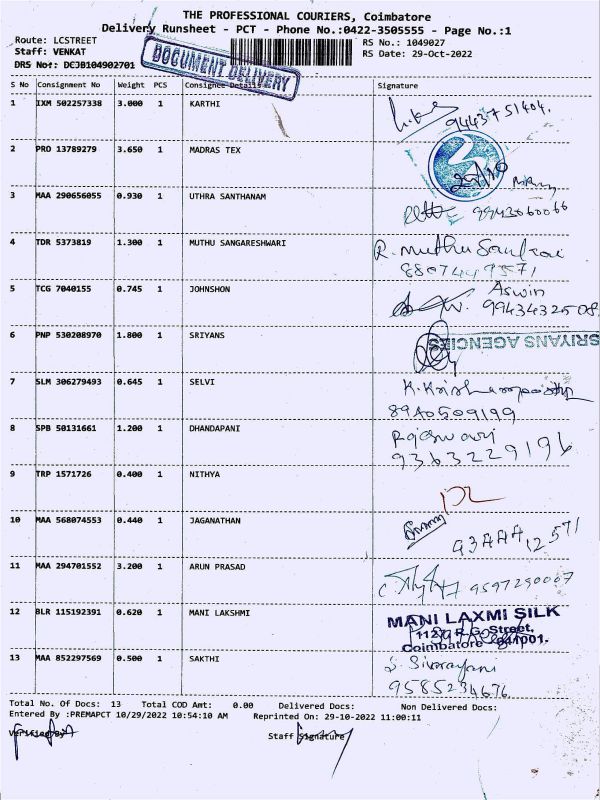 THE PROFESSIONAL COURIERS, Coimbatore
Delivery Runsheet - PCT - Phone No.:0422-3505555 - Page No.:1
Route: LCSTREET RS No.: 1049027
Staff: VENKAT RS Date: 29-Oct-2022
DRS No#: DCJB104902701
DOCUMENT DELIVERY
S No Consignment No Weight PCS Consignee Details Signature
1 IXM 502257338 3.000 1 KARTHI
9443751404.
2 PRO 13789279 3.650 1 MADRAS TEX
3 MAA 290656055 0.930 1 UTHRA SANTHANAM
9943060066
4 TDR 5373819 1.300 1 MUTHU SANGARESHWARI R. muthu
5 TCG 7040155 0.745 1 JOHNSHON Aswin
9943432508
6 PNP 530208970 1.800 1 SRIYANS
SRIYANS AGENCIES
7 SLM 306279493 0.645 1 SELVI
8940509199
8 SPB 50131661 1.200 1 DHANDAPANI
9363229196
9 TRP 1571726 0.400 1 NITHYA
10 MAA 568074553 0.440 1 JAGANATHAN
11 MAA 294701552 3.200 1 ARUN PRASAD
9597290007
12 BLR 115192391 0.620 1 MANI LAKSHMI MANI LAXMI SILK
Street,
Coimbatore
13 MAA 852297569 0.500 1 SAKTHI
9585234676
Total No. Of Docs: 13 Total COD Amt: 0.00 Delivered Docs: Non Delivered Docs:
Entered By :PREMAPCT 10/29/2022 10:54:10 AM Reprinted On: 29-10-2022 11:00:11
Verified By Staff Signature